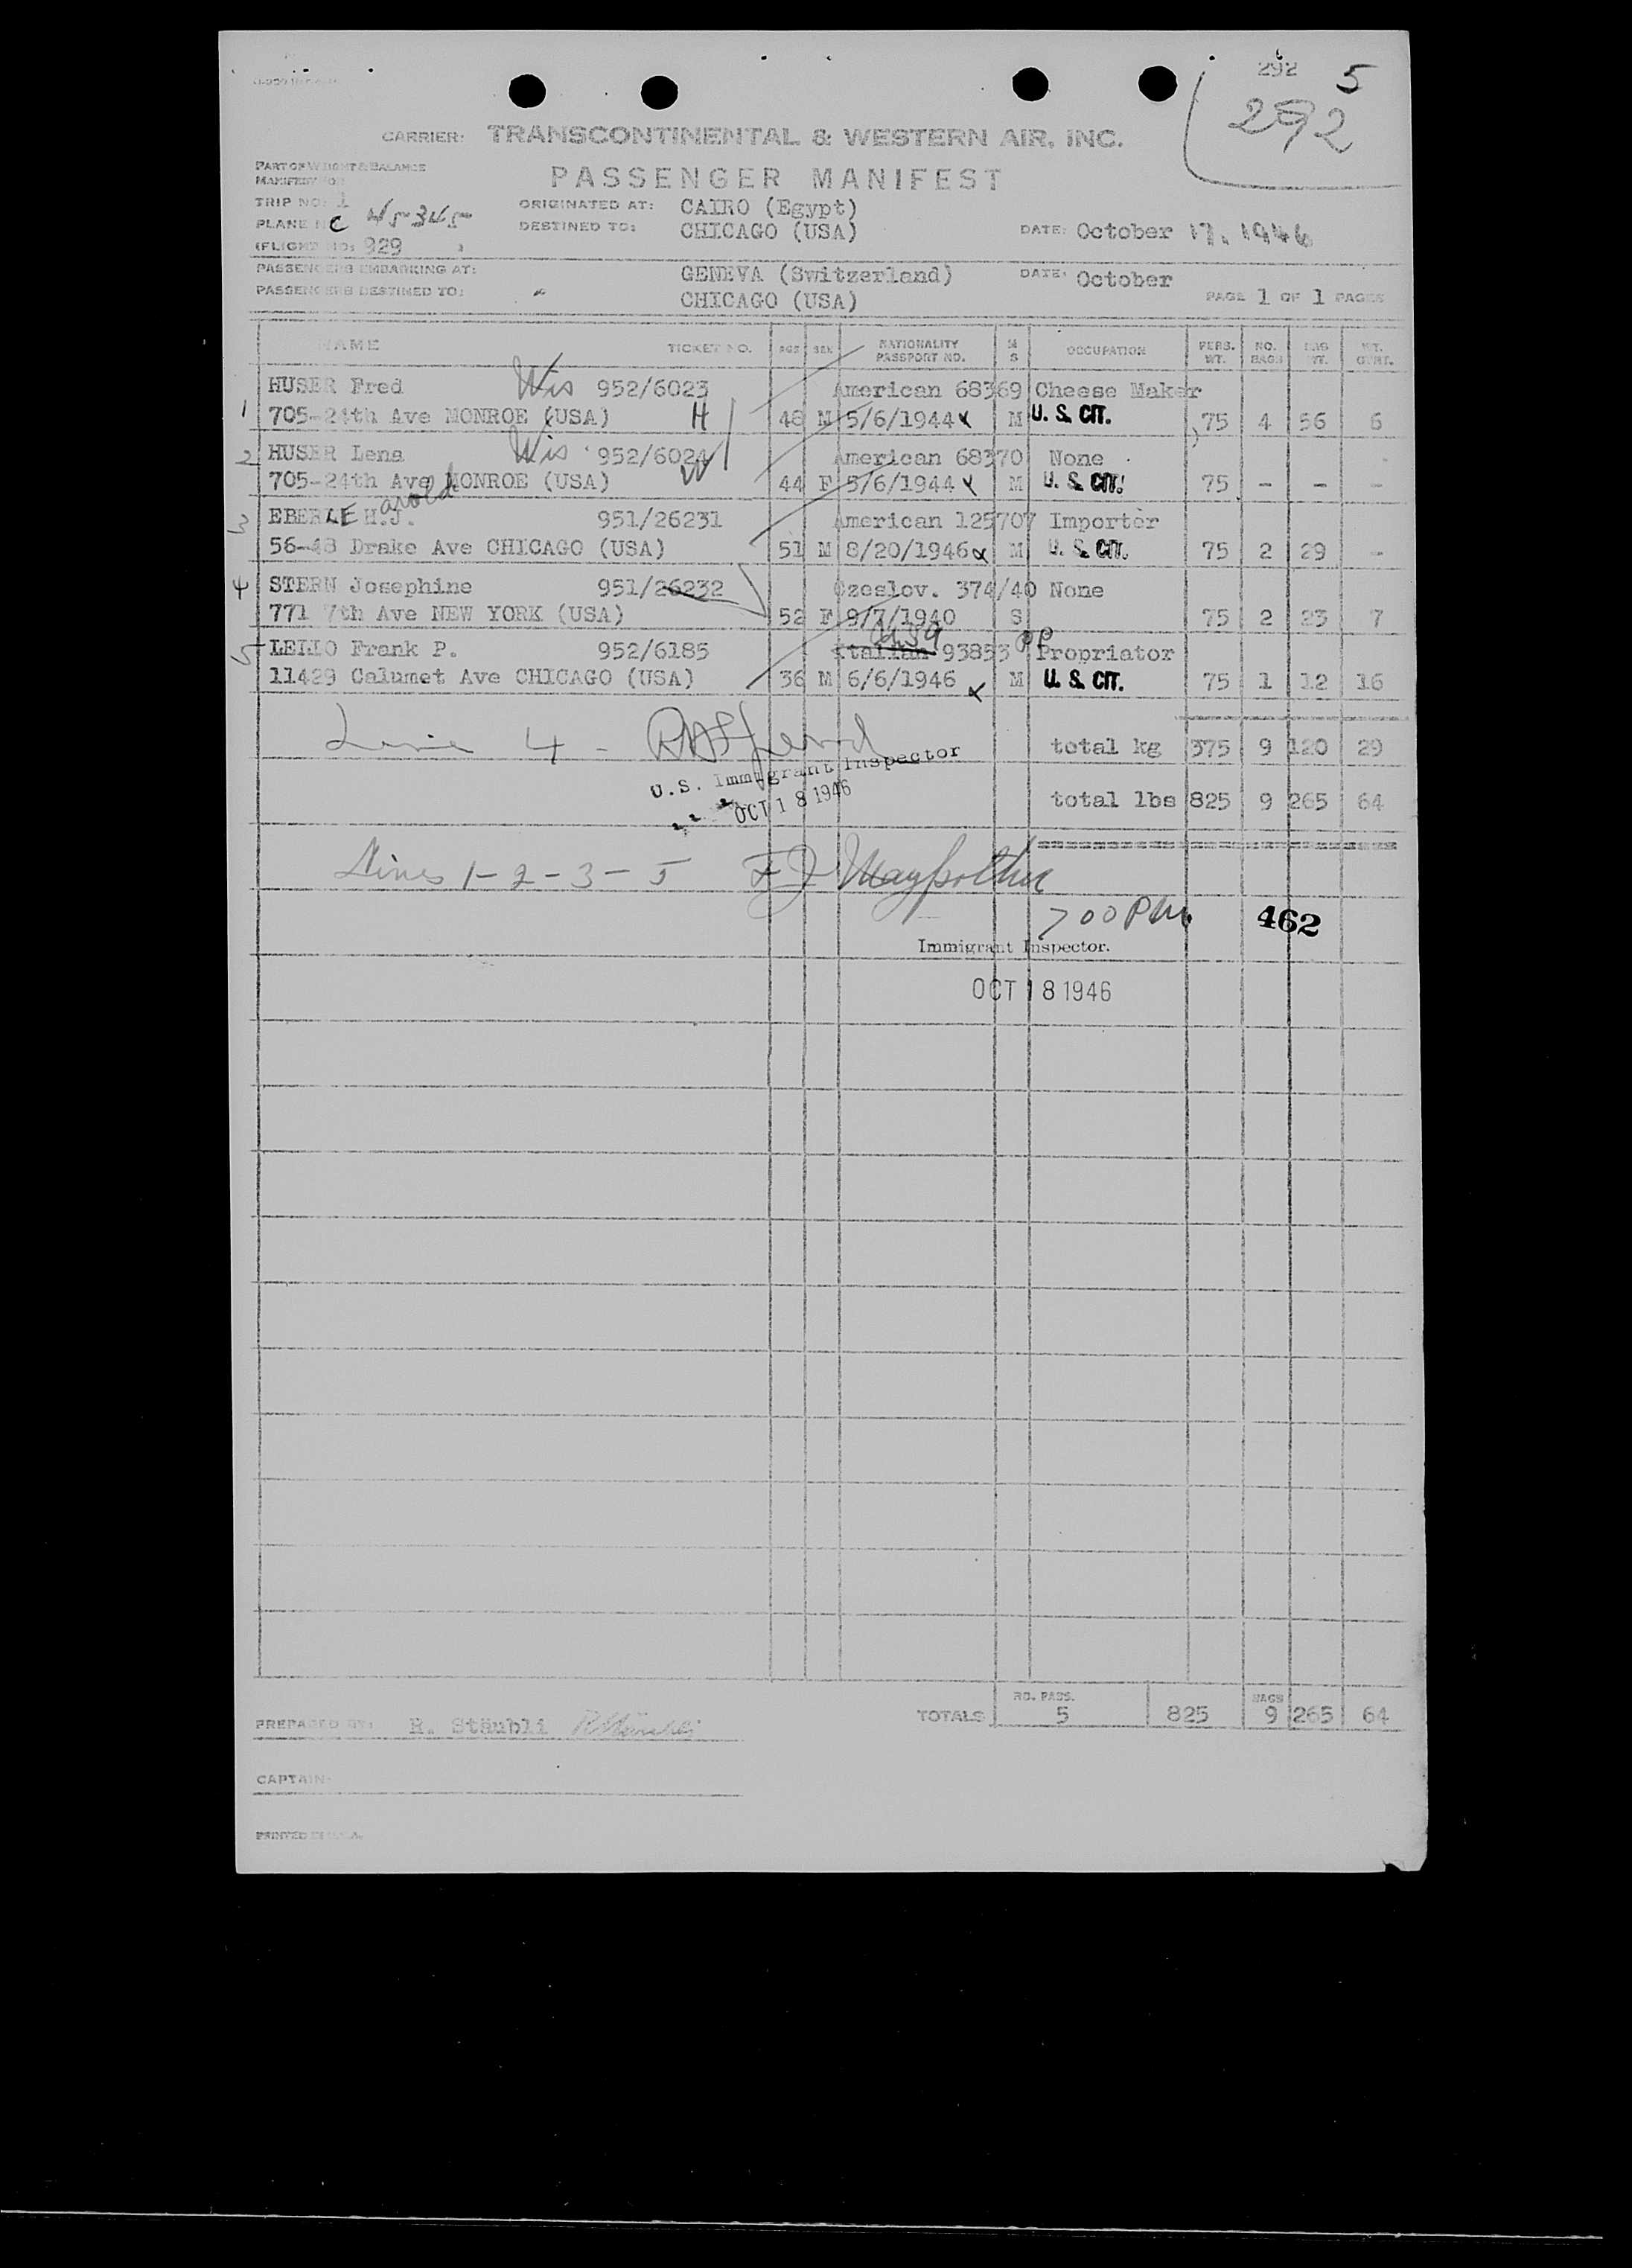 292 5
292
CARRIER: TRANSCONTINENTAL & WESTERN AIR, INC.
PART OF WEIGHT & BALANCE
MANIFEST
PASSENGER MANIFEST
TRIP NO: 1 ORIGINATED AT: CAIRO (Egypt)
PLANE C 45345 DESTINED TO: CHICAGO (USA) DATE: October 17, 1946
(FLIGHT NO: 929 )
PASSENGERS EMBARKING AT: GENEVA (Switzerland) DATE: October
PASSENGERS DESTINED TO: CHICAGO (USA) PAGE 1 OF 1 PAGES
NAME TICKET NO. AGE SEX NATIONALITY PASSPORT NO. M S OCCUPATION PERS. WT. NO. BAGS BAG WT. WT. OVRT.
HUSER Fred Wis 952/6023 American 68369 Cheese Maker
1 705-24th Ave MONROE (USA) H 48 M 5/6/1944 M U. S. CIT. 75 4 56 6
2 HUSER Lena Wis 952/6024 American 68370 None
705-24th Ave MONROE (USA) W 44 F 5/6/1944 M U. S. CIT. 75 - - -
arold
3 EBERLE H.J. 951/26231 American 125707 Importer
56-48 Drake Ave CHICAGO (USA) 51 M 8/20/1946 M U. S. CIT. 75 2 29 -
4 STERN Josephine 951/26232 Czeslov. 374/40 None
771 7th Ave NEW YORK (USA) 52 F 9/7/1940 S 75 2 23 7
5 LELLO Frank P. 952/6185 Italian 93853 PP Propriator
11429 Calumet Ave CHICAGO (USA) 36 M 6/6/1946 M U. S. CIT. 75 1 12 16
Line 4 - total kg 375 9 120 29
U.S. Immigrant Inspector
OCT 18 1946
total lbs 825 9 265 64
Lines 1-2-3-5 F J
700 PM 462
Immigrant Inspector.
OCT 18 1946
NO. PASS. BAGS
TOTALS 5 825 9 265 64
PREPARED BY: R. Stäubli
CAPTAIN
PRINTED IN U.S.A.